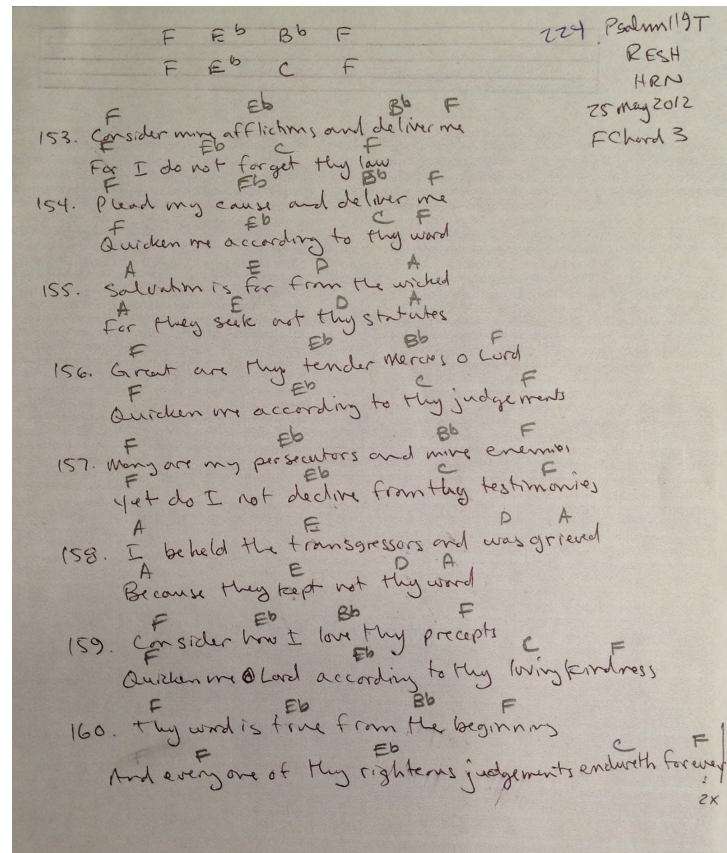 F Eb Bb F
F Eb C F
224 Psalm 119T
RESH
HRN
25 May 2012
F Chord 3
F Eb Bb F
153. Consider mine afflictions and deliver me
F Eb C F
For I do not forget thy law
F Eb Bb F
154. Plead my cause and deliver me
F Eb C F
Quicken me according to thy word
A E D A
155. Salvation is far from the wicked
A E D A
For they seek not thy statutes
F Eb Bb F
156. Great are thy tender mercies o Lord
F Eb C F
Quicken me according to thy judgements
F Eb Bb F
157. Many are my persecutors and mine enemies
F Eb C F
Yet do I not decline from thy testimonies
A E D A
158. I beheld the transgressors and was grieved
A E D A
Because they kept not thy word
F Eb Bb F
159. Consider how I love thy precepts
F Eb C F
Quicken me O Lord according to thy loving kindness
F Eb Bb F
160. Thy word is true from the beginning
F Eb C F
And every one of thy righteous judgements endureth forever
2x